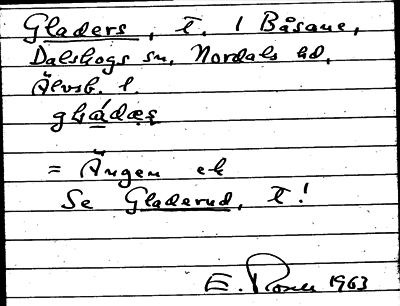 Gladers, T. 1 Båsane,
Dalskogs sn, Nordals hd,
Älvsb. l.
= Ängen ek
Se Gladerud, T!
E. Rosell 1963